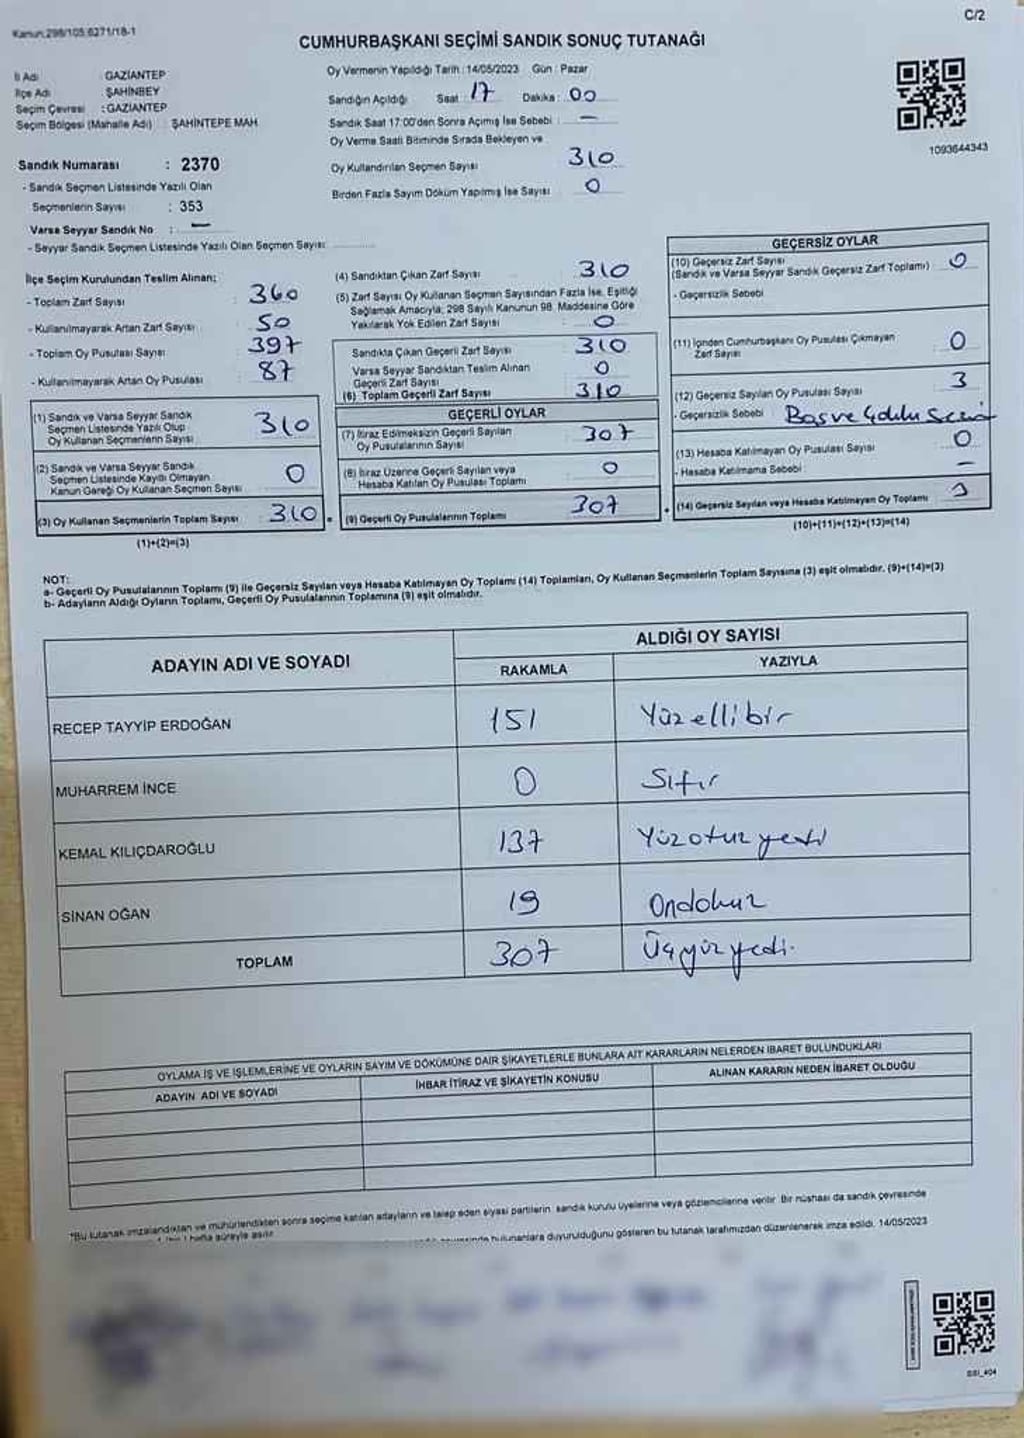 Kanun:298/105,6271/18-1
C/2
CUMHURBAŞKANI SEÇİMİ SANDIK SONUÇ TUTANAĞI
İl Adı : GAZİANTEP
İlçe Adı : ŞAHİNBEY
Seçim Çevresi : GAZİANTEP
Seçim Bölgesi (Mahalle Adı) : ŞAHİNTEPE MAH.
Oy Vermenin Yapıldığı Tarih : 14/05/2023 Gün : Pazar
Sandığın Açıldığı Saat : 17 Dakika : 00
Sandık Saat 17:00'den Sonra Açılmış İse Sebebi : —
Oy Verme Saati Bitiminde Sırada Bekleyen ve
Oy Kullandırılan Seçmen Sayısı 310
Birden Fazla Sayım Döküm Yapılmış İse Sayısı 0
1093644343
Sandık Numarası : 2370
- Sandık Seçmen Listesinde Yazılı Olan
Seçmenlerin Sayısı : 353
Varsa Seyyar Sandık No : —
- Seyyar Sandık Seçmen Listesinde Yazılı Olan Seçmen Sayısı:
İlçe Seçim Kurulundan Teslim Alınan;
- Toplam Zarf Sayısı : 360
- Kullanılmayarak Artan Zarf Sayısı : 50
- Toplam Oy Pusulası Sayısı : 397
- Kullanılmayarak Artan Oy Pusulası : 87
(1) Sandık ve Varsa Seyyar Sandık
Seçmen Listesinde Yazılı Olup
Oy Kullanan Seçmenlerin Sayısı : 310
(2) Sandık ve Varsa Seyyar Sandık
Seçmen Listesinde Kayıtlı Olmayan
Kanun Gereği Oy Kullanan Seçmen Sayısı 0
(3) Oy Kullanan Seçmenlerin Toplam Sayısı : 310
(1)+(2)=(3)
(4) Sandıktan Çıkan Zarf Sayısı : 310
(5) Zarf Sayısı Oy Kullanan Seçmen Sayısından Fazla İse, Eşitliği
Sağlamak Amacıyla; 298 Sayılı Kanunun 98. Maddesine Göre
Yakılarak Yok Edilen Zarf Sayısı : 0
Sandıkta Çıkan Geçerli Zarf Sayısı : 310
Varsa Seyyar Sandıktan Teslim Alınan
Geçerli Zarf Sayısı : 0
(6) Toplam Geçerli Zarf Sayısı : 310
GEÇERLİ OYLAR
(7) İtiraz Edilmeksizin Geçerli Sayılan
Oy Pusulalarının Sayısı : 307
(8) İtiraz Üzerine Geçerli Sayılan veya
Hesaba Katılan Oy Pusulası Toplamı : 0
(9) Geçerli Oy Pusulalarının Toplamı : 307
GEÇERSİZ OYLAR
(10) Geçersiz Zarf Sayısı
(Sandık ve Varsa Seyyar Sandık Geçersiz Zarf Toplamı) : 0
- Geçersizlik Sebebi
(11) İçinden Cumhurbaşkanı Oy Pusulası Çıkmayan
Zarf Sayısı : 0
(12) Geçersiz Sayılan Oy Pusulası Sayısı 3
- Geçersizlik Sebebi
(13) Hesaba Katılmayan Oy Pusulası Sayısı : 0
- Hesaba Katılmama Sebebi : —
(14) Geçersiz Sayılan veya Hesaba Katılmayan Oy Toplamı : 3
(10)+(11)+(12)+(13)=(14)
NOT:
a- Geçerli Oy Pusulalarının Toplamı (9) ile Geçersiz Sayılan veya Hesaba Katılmayan Oy Toplamı (14) Toplamları, Oy Kullanan Seçmenlerin Toplam Sayısına (3) eşit olmalıdır. (9)+(14)=(3)
b- Adayların Aldığı Oyların Toplamı, Geçerli Oy Pusulalarının Toplamına (9) eşit olmalıdır.
ADAYIN ADI VE SOYADI
ALDIĞI OY SAYISI
RAKAMLA YAZIYLA
RECEP TAYYİP ERDOĞAN 151 Yüzellibir
MUHARREM İNCE 0 Sıfır
KEMAL KILIÇDAROĞLU 137 Yüzotuzyedi
SİNAN OĞAN 19 Ondokuz
TOPLAM 307 Üçyüzyedi.
OYLAMA İŞ VE İŞLEMLERİNE VE OYLARIN SAYIM VE DÖKÜMÜNE DAİR ŞİKAYETLERLE BUNLARA AİT KARARLARIN NELERDEN İBARET BULUNDUKLARI
ADAYIN ADI VE SOYADI İHBAR İTİRAZ VE ŞİKAYETİN KONUSU ALINAN KARARIN NEDEN İBARET OLDUĞU
*Bu tutanak imzalandıktan ve mühürlendikten sonra seçime katılan adayların ve talep eden siyasi partilerin sandık kurulu üyelerine veya gözlemcilerine verilir. Bir nüshası da sandık çevresinde
1 hafta süreyle asılır.
bulunanlara duyurulduğunu gösteren bu tutanak tarafımızdan düzenlenerek imza edildi. 14/05/2023